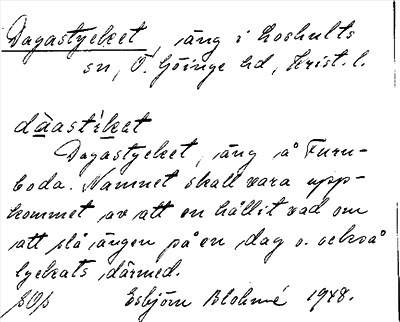 Dagastycket, äng i Loshults
sn, Ö. Göinge hd, Krist. l.
dàastíket
Dagastycket, äng å Furu-
boda. Namnet skall vara upp-
kommet av att en hållit vad om
att slå ängen på en dag o. också
lyckats därmed.
Esbjörn Blohmé 1948.